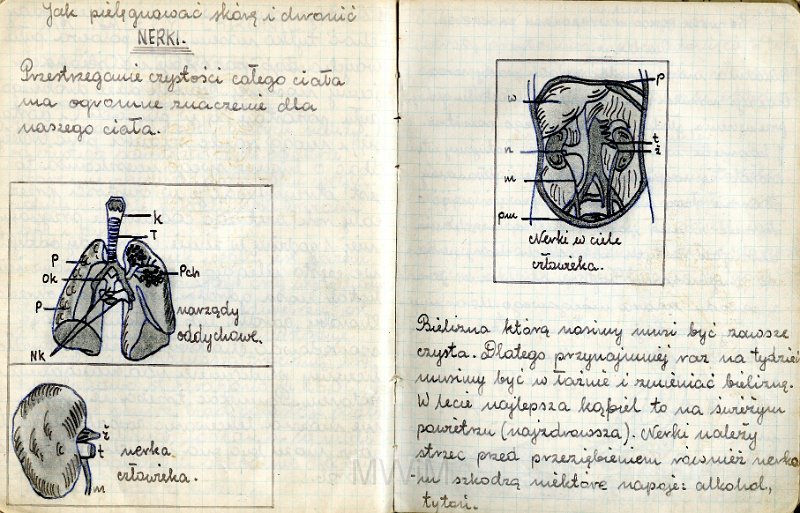 Jak pielęgnować skórę i chronić
NERKI.
Przestrzeganie czystości całego ciała
ma ogromne znaczenie dla
naszego ciała.
K
T
P
Ok
Pch
P
narządy
oddychowe.
Nk
ż
t
m
nerka
człowieka.
w
p
n
t
ż
m
pm
Nerki w ciele
człowieka.
Bielizna którą nosimy musi być zawsze
czysta. Dlatego przynajmniej raz na tydzień
musimy być w łaźnie i zmieniać bieliznę.
W lecie najlepsza kąpiel to na świeżym
powietrzu (najzdrowsza). Nerki należy
strzec przed przeziębieniem również nerko-
m szkodzą niektóre napoje: alkohol,
tytoń.
MWM